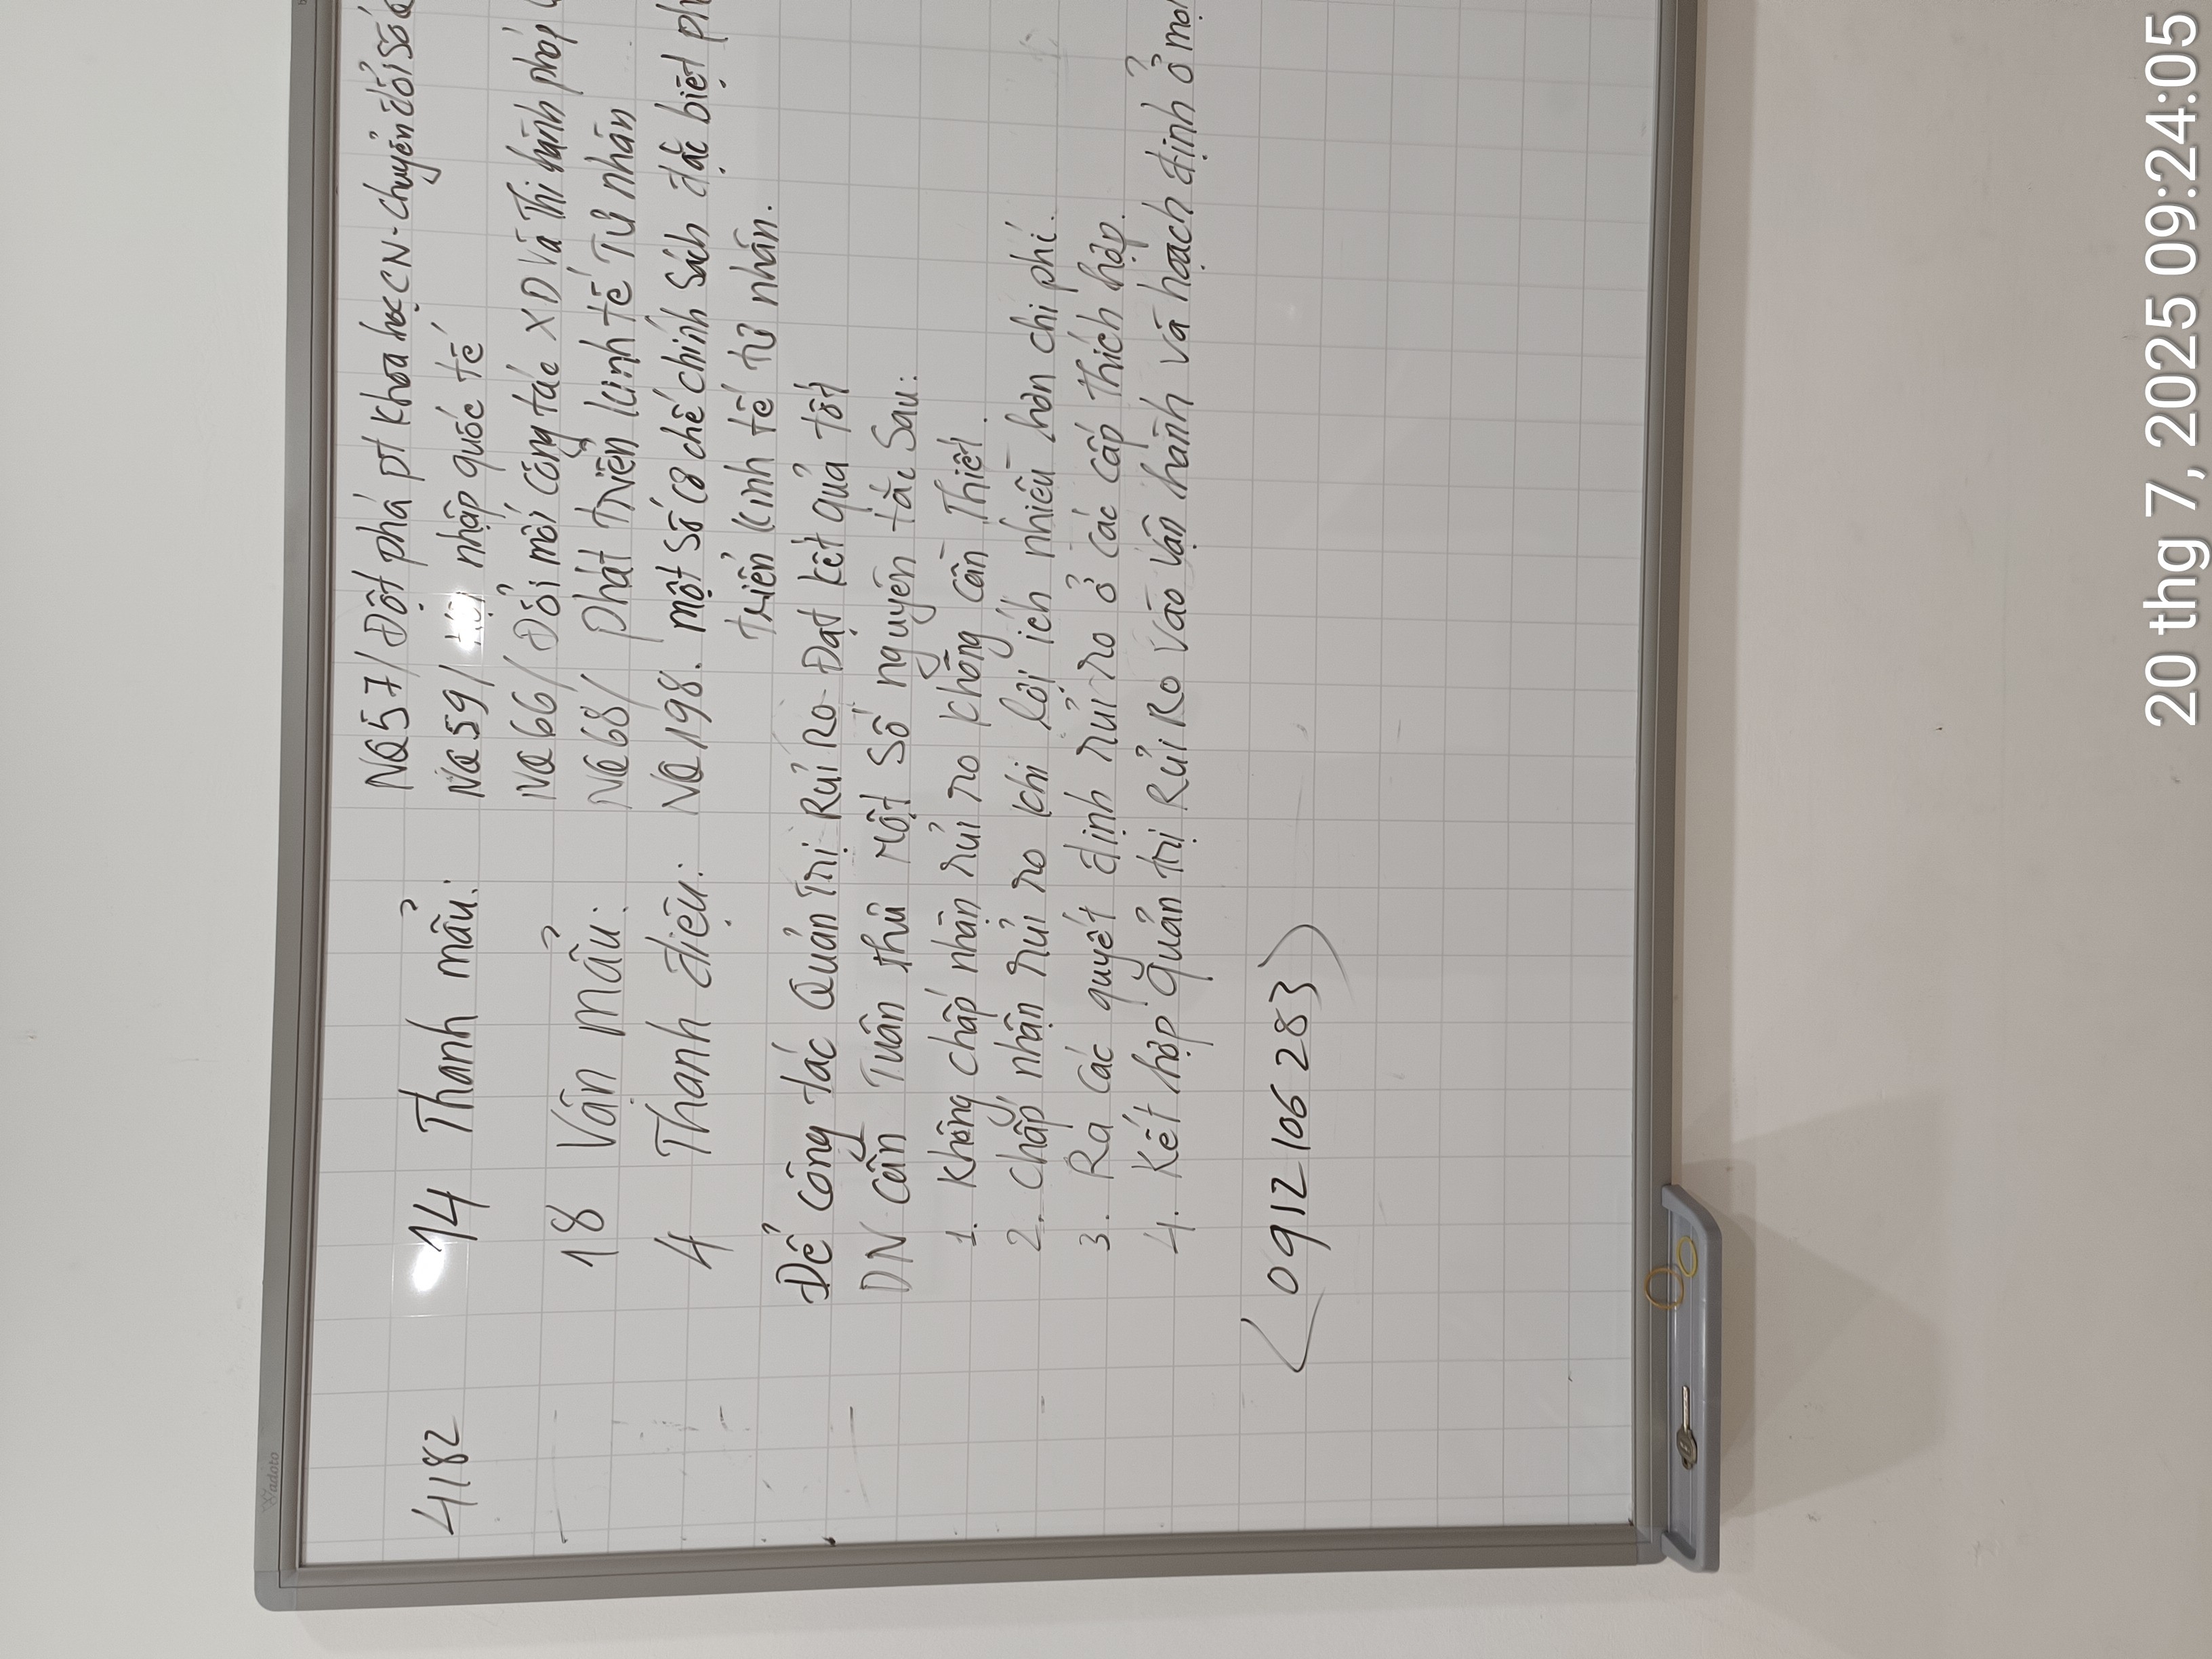 NQ57/ Đột phá pt khoa học CN - chuyển đổi số
4182 14 Thanh mẩu: NQ59/ nhập quốc tế
NQ66/ Đổi mới công tác XD Và Thi hành pháp
18 Vần mẩu: NQ68/ phát triển kinh tế Tư nhân
4 Thanh điệu: NQ198. một số cơ chế chính sách đặc biệt
triển kinh tế tư nhân.
Để công tác Quản Trị Rủi Ro Đạt kết quả tốt
DN cần Tuân thủ Một Số nguyên tắc Sau:
1. Không chấp nhận rủi ro không cần Thiết.
2. chấp nhận rủi ro khi lợi ích nhiều hơn chi phí.
3. Ra các quyết định rủi ro ở các cấp thích hợp.
4. Kết hợp Quản trị Rủi Ro Vào Vận hành và hoạch định ở mọi
0912 106 283
Wadoto
20 thg 7, 2025 09:24:05